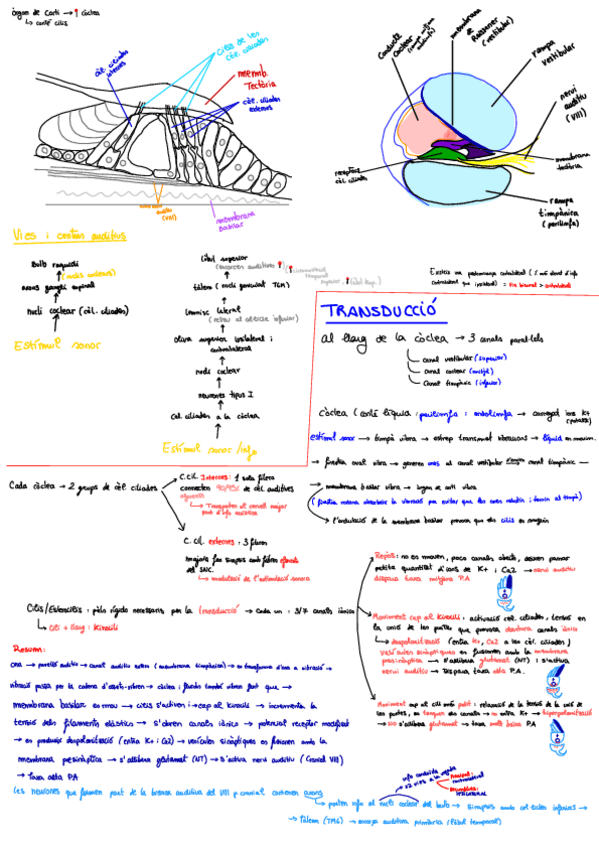 òrgan de Corti → ! còclea
↳ conté cilis
cèl. ciliades internes
cilis de les cèl. ciliades
memb. Tectòria
cèl. ciliades externes
auditiu (VIII)
membrana basilar
Conducte coclear
membrana de Reissner (vestibular)
rampa vestibular
nervi auditiu (VIII)
membrana tectòria
rampa timpànica (perilimfa)
receptors cèl. ciliades
Vies i centres auditius
Bulb raquidi
(nuclis coclears)
axons gangli espiral
nucli coclear (cèl. ciliades)
Estímul sonor
lòbul superior
tàlem (nucli geniculat TGM)
lemnisc lateral
(relleu al col·licle inferior)
oliva superior ipsilateral i contralateral
nucli coclear
neurones tipus I
Cèl. ciliades a la còclea
Estímul sonor/info
TRANSDUCCIÓ
al llarg de la còclea → 3 canals paral·lels
canal vestibular (superior)
canal coclear (mitjà)
canal timpànic (inferior)
còclea (conté líquid: perilimfa i endolimfa → carregat ions K+ (potassi)
estímul sonor → timpà vibra → estrep transmet vibracions → líquid en movim.
→ finestra oval vibra → genera ones al canal vestibular → canal timpànic
→ membrana basilar vibra → òrgan de corti vibra
(finestra rodona absorbeix la vibració per evitar que les ones rebotin i tornin al timpà)
↳ l'ondulació de la membrana basilar provoca que els cilis es moguin
Cada còclea → 2 grups de cèl. ciliades
C.cil. Internes: 1 sola filera
connecten 90/95% de cèl. auditives aferents
↳ Transporten al cervell major part d'info acústica
C. cil. externes: 3 fileres
majoria fan sinapsis amb fibres eferents del SNC.
↳ modulació de l'estimulació sonora
Cilis/Estereocilis: pèls rígids necessaris per la transducció → Cada un: 3/7 canals iònics
↳ cili + llarg: Kinocili
Repòs: no es mouen, pocs canals oberts, deixen passar petita quantitat d'ions de K+ i Ca2 → nervi auditiu dispara taxa mitjana P.A
Moviment cap al Kinocili: activació cèl. ciliades, tensió en la unió de les puntes que provoca obertura canals iònics
↳ despolarització (entra K+, Ca2 a les cèl. ciliades)
vesícules sinàptiques es fusionen amb la membrana presinàptica → s'allibera glutamat (NT) i s'activa
nervi auditiu → Dispara taxa alta P.A.
Moviment cap al cili més petit: relaxació de la tensió de la unió de les puntes, es tanquen els canals → no entra K+ → hiperpolarització
→ no s'allibera glutamat → taxa molt baixa P.A
Resum:
ona → pavelló auditiu → canal auditiu extern (membrana timpànica) → es transforma d'ona a vibració →
vibració passa per la cadena d'ossets-vibren → còclea i finestra també vibren fent que →
membrana basilar es mou → cilis s'activen i cap al kinocili → incrementa la
tensió dels filaments elàstics → s'obren canals iònics → potencial receptor modificat
→ es produeix despolarització (entra K+ i Ca2) → vesícules sinàptiques es fusionen amb la
membrana presinàptica → s'allibera glutamat (NT) → s'activa nervi auditiu (cranial VIII)
→ taxa alta PA
les neurones que formen part de la branca auditiva del VIII p cranial contenen axons
→ porten info al nucli coclear del bulb → Sinapsis amb col·licles inferiors →
→ Tàlem (TMG) → escorça auditiva primària (lòbul temporal)
info conduïda x2 vies a la vegada
contralateral
ipsilateral